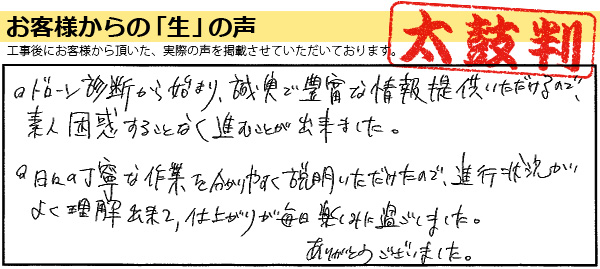 お客様からの「生」の声
工事後にお客様から頂いた、実際の声を掲載させていただいております。
太鼓判
ドローン診断から始まり、誠実で豊富な情報提供いただけるので、
素人困惑することなく進むことが出来ました。
日々の丁寧な作業を分かりやすく説明いただけたので、進行状況が
よく理解出来て、仕上がりが毎日楽しみに過ごしました。
ありがとうございました。